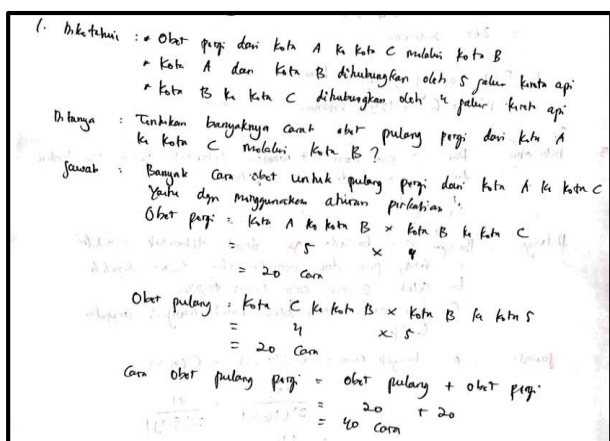 1. Diketahui : * Obet pergi dari kota A ke kota C melalui kota B
* Kota A dan kota B dihubungkan oleh 5 jalur kereta api
* Kota B ke kota C dihubungkan oleh 4 jalur kereta api
Ditanya : Tentukan banyaknya cara obet pulang pergi dari kota A
ke kota C melalui kota B ?
Jawab : Banyak cara obet untuk pulang pergi dari kota A ke kota C
yaitu dgn menggunakan aturan perkalian :
Obet pergi = kota A ke kota B × kota B ke kota C
= 5 × 4
= 20 cara
Obet pulang = kota C ke kota B × kota B ke kota 5
= 4 × 5
= 20 cara
Cara obet pulang pergi = obet pulang + obet pergi
= 20 + 20
= 40 cara